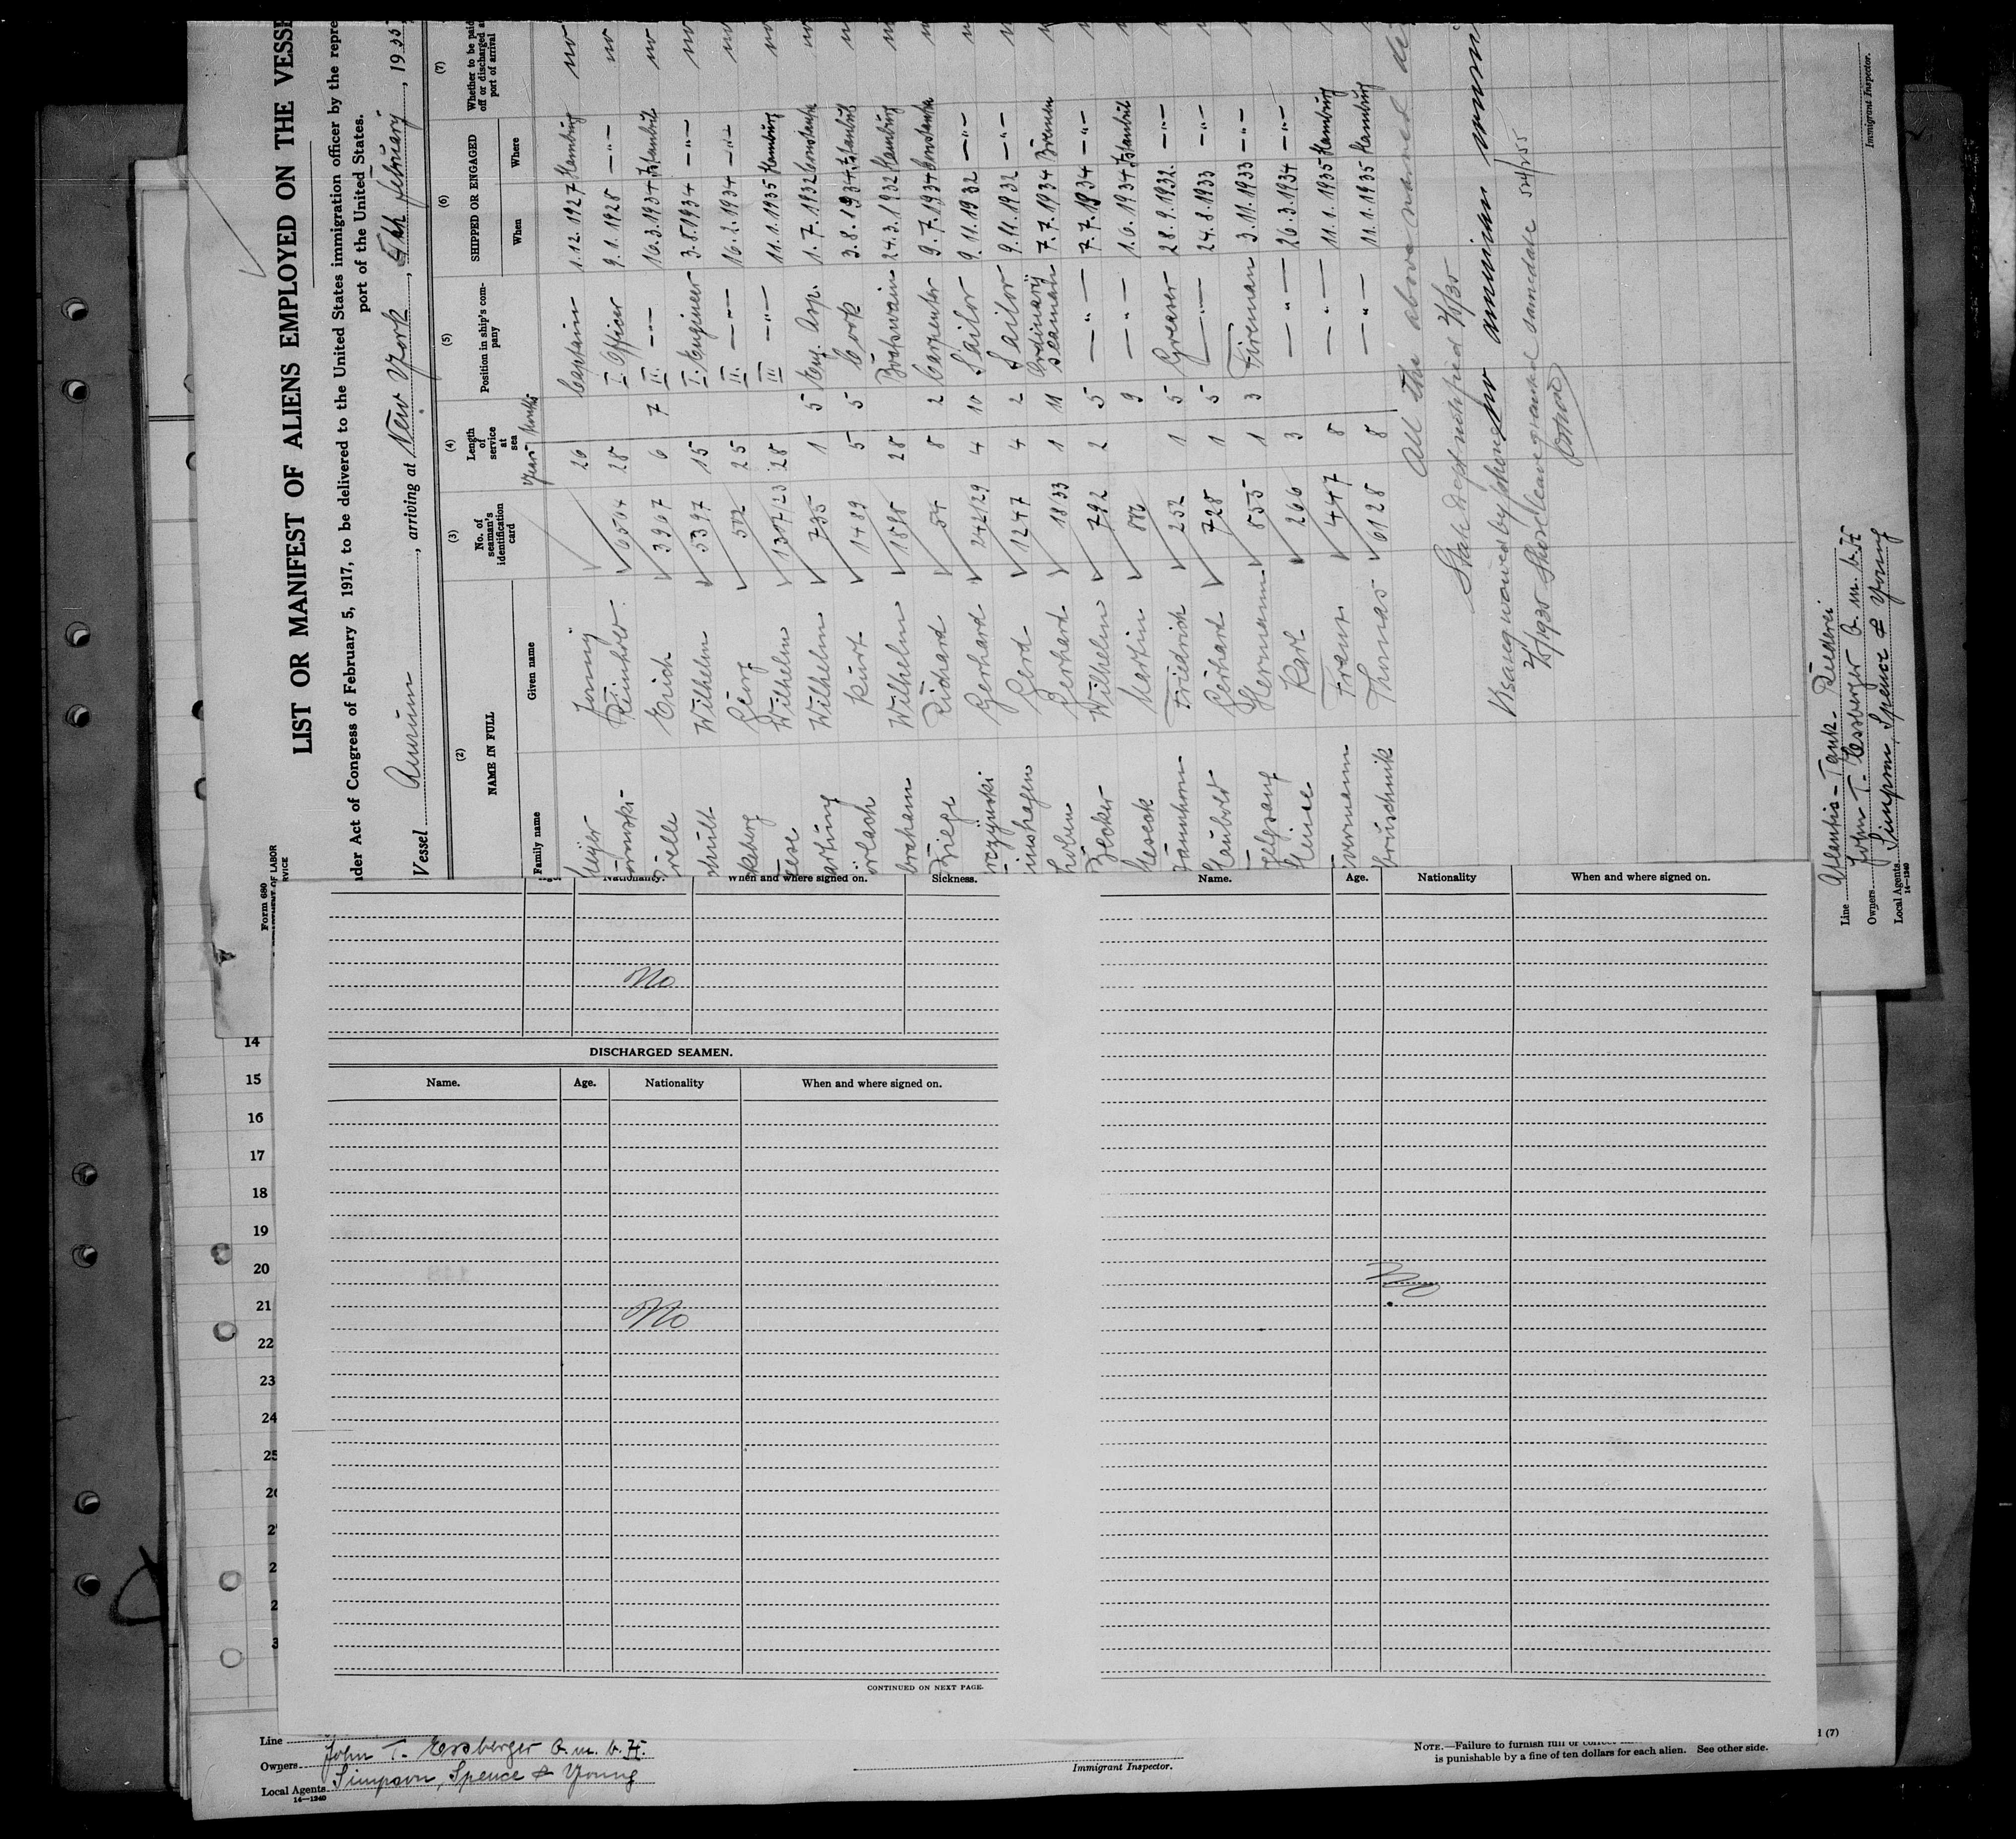 Form 680
OF LABOR
RVICE
LIST OR MANIFEST OF ALIENS EMPLOYED ON THE VESSE
der Act of Congress of February 5, 1917, to be delivered to the United States immigration officer by the repre
port of the United States.
Vessel Aurum, arriving at New York, 5th february, 1935
(2) (3) (4) (5) (6) (7)
NAME IN FULL
Family name Given name
No. of seaman's identification card
Length of service at sea
Years Months
Position in ship's com-pany
SHIPPED OR ENGAGED
When Where
Whether to be paid off or discharged a port of arrival
Meyer 26 Captain 1.12.1927 Hamburg no
Reinhold 6504 28 I. Officer 9.1.1928 -"- no
Erich 3967 6 7 II. -"- 16.3.1934 Istanbul no
Wilhelm 5397 15 I. Engineer 3.8.1934 -"- no
keberg Georg 502 25 II. -"- 16.2.1934 -"- no
Wilhelm 28 III -"- 11.1.1935 Hamburg no
artung Wilhelm 735 1 5 Eng. Asp. 1.7.1932 Constanta no
örlach Kurt 1489 5 5 Cook 3.8.1934 Istanbul n
braham Wilhelm 1898 28 Bootswain 24.3.1932 Hamburg n
Richard 54 8 2 Carpenter 9.7.1934 Constanta n
Gerhard 242129 4 10 Sailor 9.11.1932 -"- n
inshagen Gerd 1247 4 2 Sailor 9.11.1932 -"- n
Gerhard 1833 1 11 Ordinary Seaman 7.7.1934 Bremen n
Becker Wilhelm 792 2 5 -"- 7.7.1934 -"- n
Meseck Martin 9 -"- 1.6.1934 Istanbul
Friedrich 252 1 5 Greaser 28.9.1932. -"-
Haubold Gerhard 728 1 5 -"- 24.8.1933 -"-
Hermann 855 1 3 Fireman 3.11.1933 -"-
Heine Karl 266 3 -"- 26.3.1934 -"-
vermann Franz 447 8 -"- 11.1.1935 Hamburg
Thomas 6128 8 -"- 11.1.1935 Hamburg
All the above named
State Dept notified 2/5/35
Visa req waived by phone
2/5/1935 Shore leave granted same date
Line Atlantis-Tank-Rhederei
Owners John T. Essberger G.m.b.H
Local Agents Simpson, Spence & Young
14—1240
Immigrant Inspector.
Nationality. When and where signed on. Sickness.
No
DISCHARGED SEAMEN.
Name. Age. Nationality When and where signed on.
No
CONTINUED ON NEXT PAGE.
Name. Age. Nationality When and where signed on.
No
14
15
16
17
18
19
20
21
22
23
24
25
Line
Owners John T. Essberger G.m.b.H.
Local Agents Simpson, Spence & Young
14—1240
Immigrant Inspector.
(7)
NOTE.—Failure to furnish full or
is punishable by a fine of ten dollars for each alien. See other side.